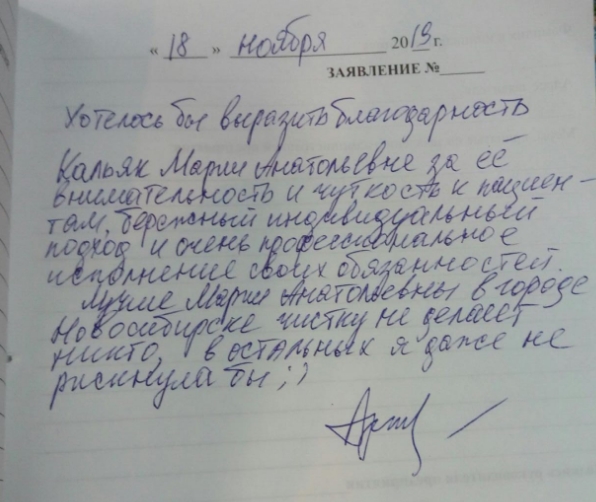 « 18 » ноября 2019 г.
ЗАЯВЛЕНИЕ №
Хотелось бы выразить благодарность
Кальяк Марии Анатольевне за её
внимательность и чуткость к пациен-
там, бережный индивидуальный
подход и очень профессиональное
исполнение своих обязанностей.
Лучше Марии Анатольевны в городе
Новосибирске чистку не делает
никто, в остальных я даже не
рискнула бы ;)